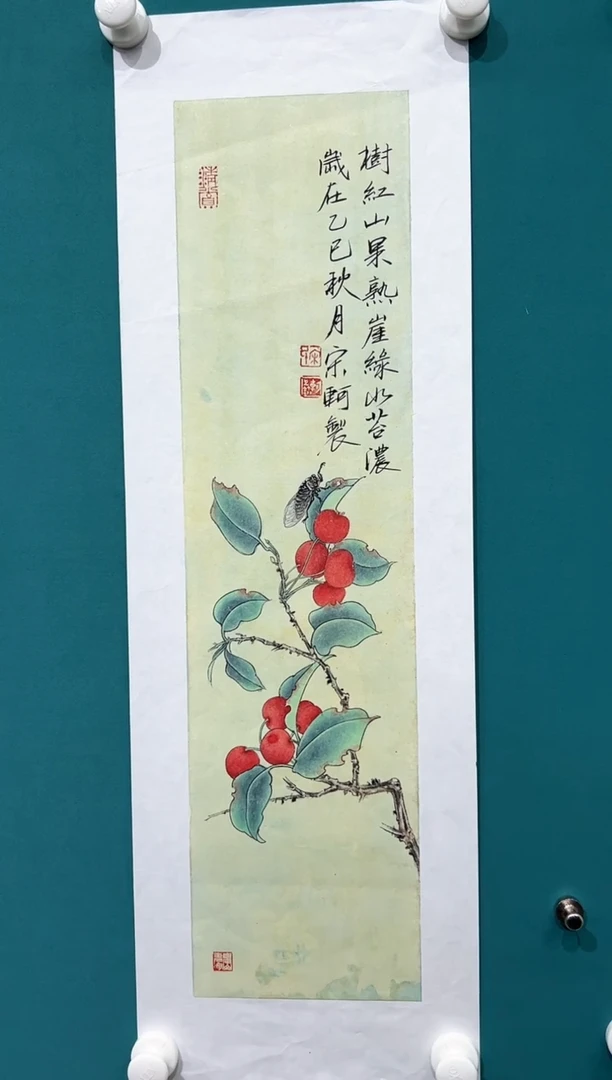 樹紅山果熟崖綠水苔濃
歲在乙巳秋月宋軻製